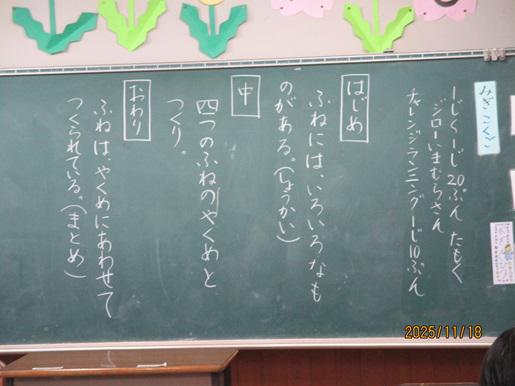 みぎこくご
1じく1じ20ぷん たもく
ジローいまむらさん
チャレンジランニング1じ10ぷん
はじめ
ふねには、いろいろなも
のがある。(しょうかい)
中
四つのふねのやくめと
つくり。
おわり
ふねは、やくめにあわせて
つくられている。(まとめ)
2025/11/18